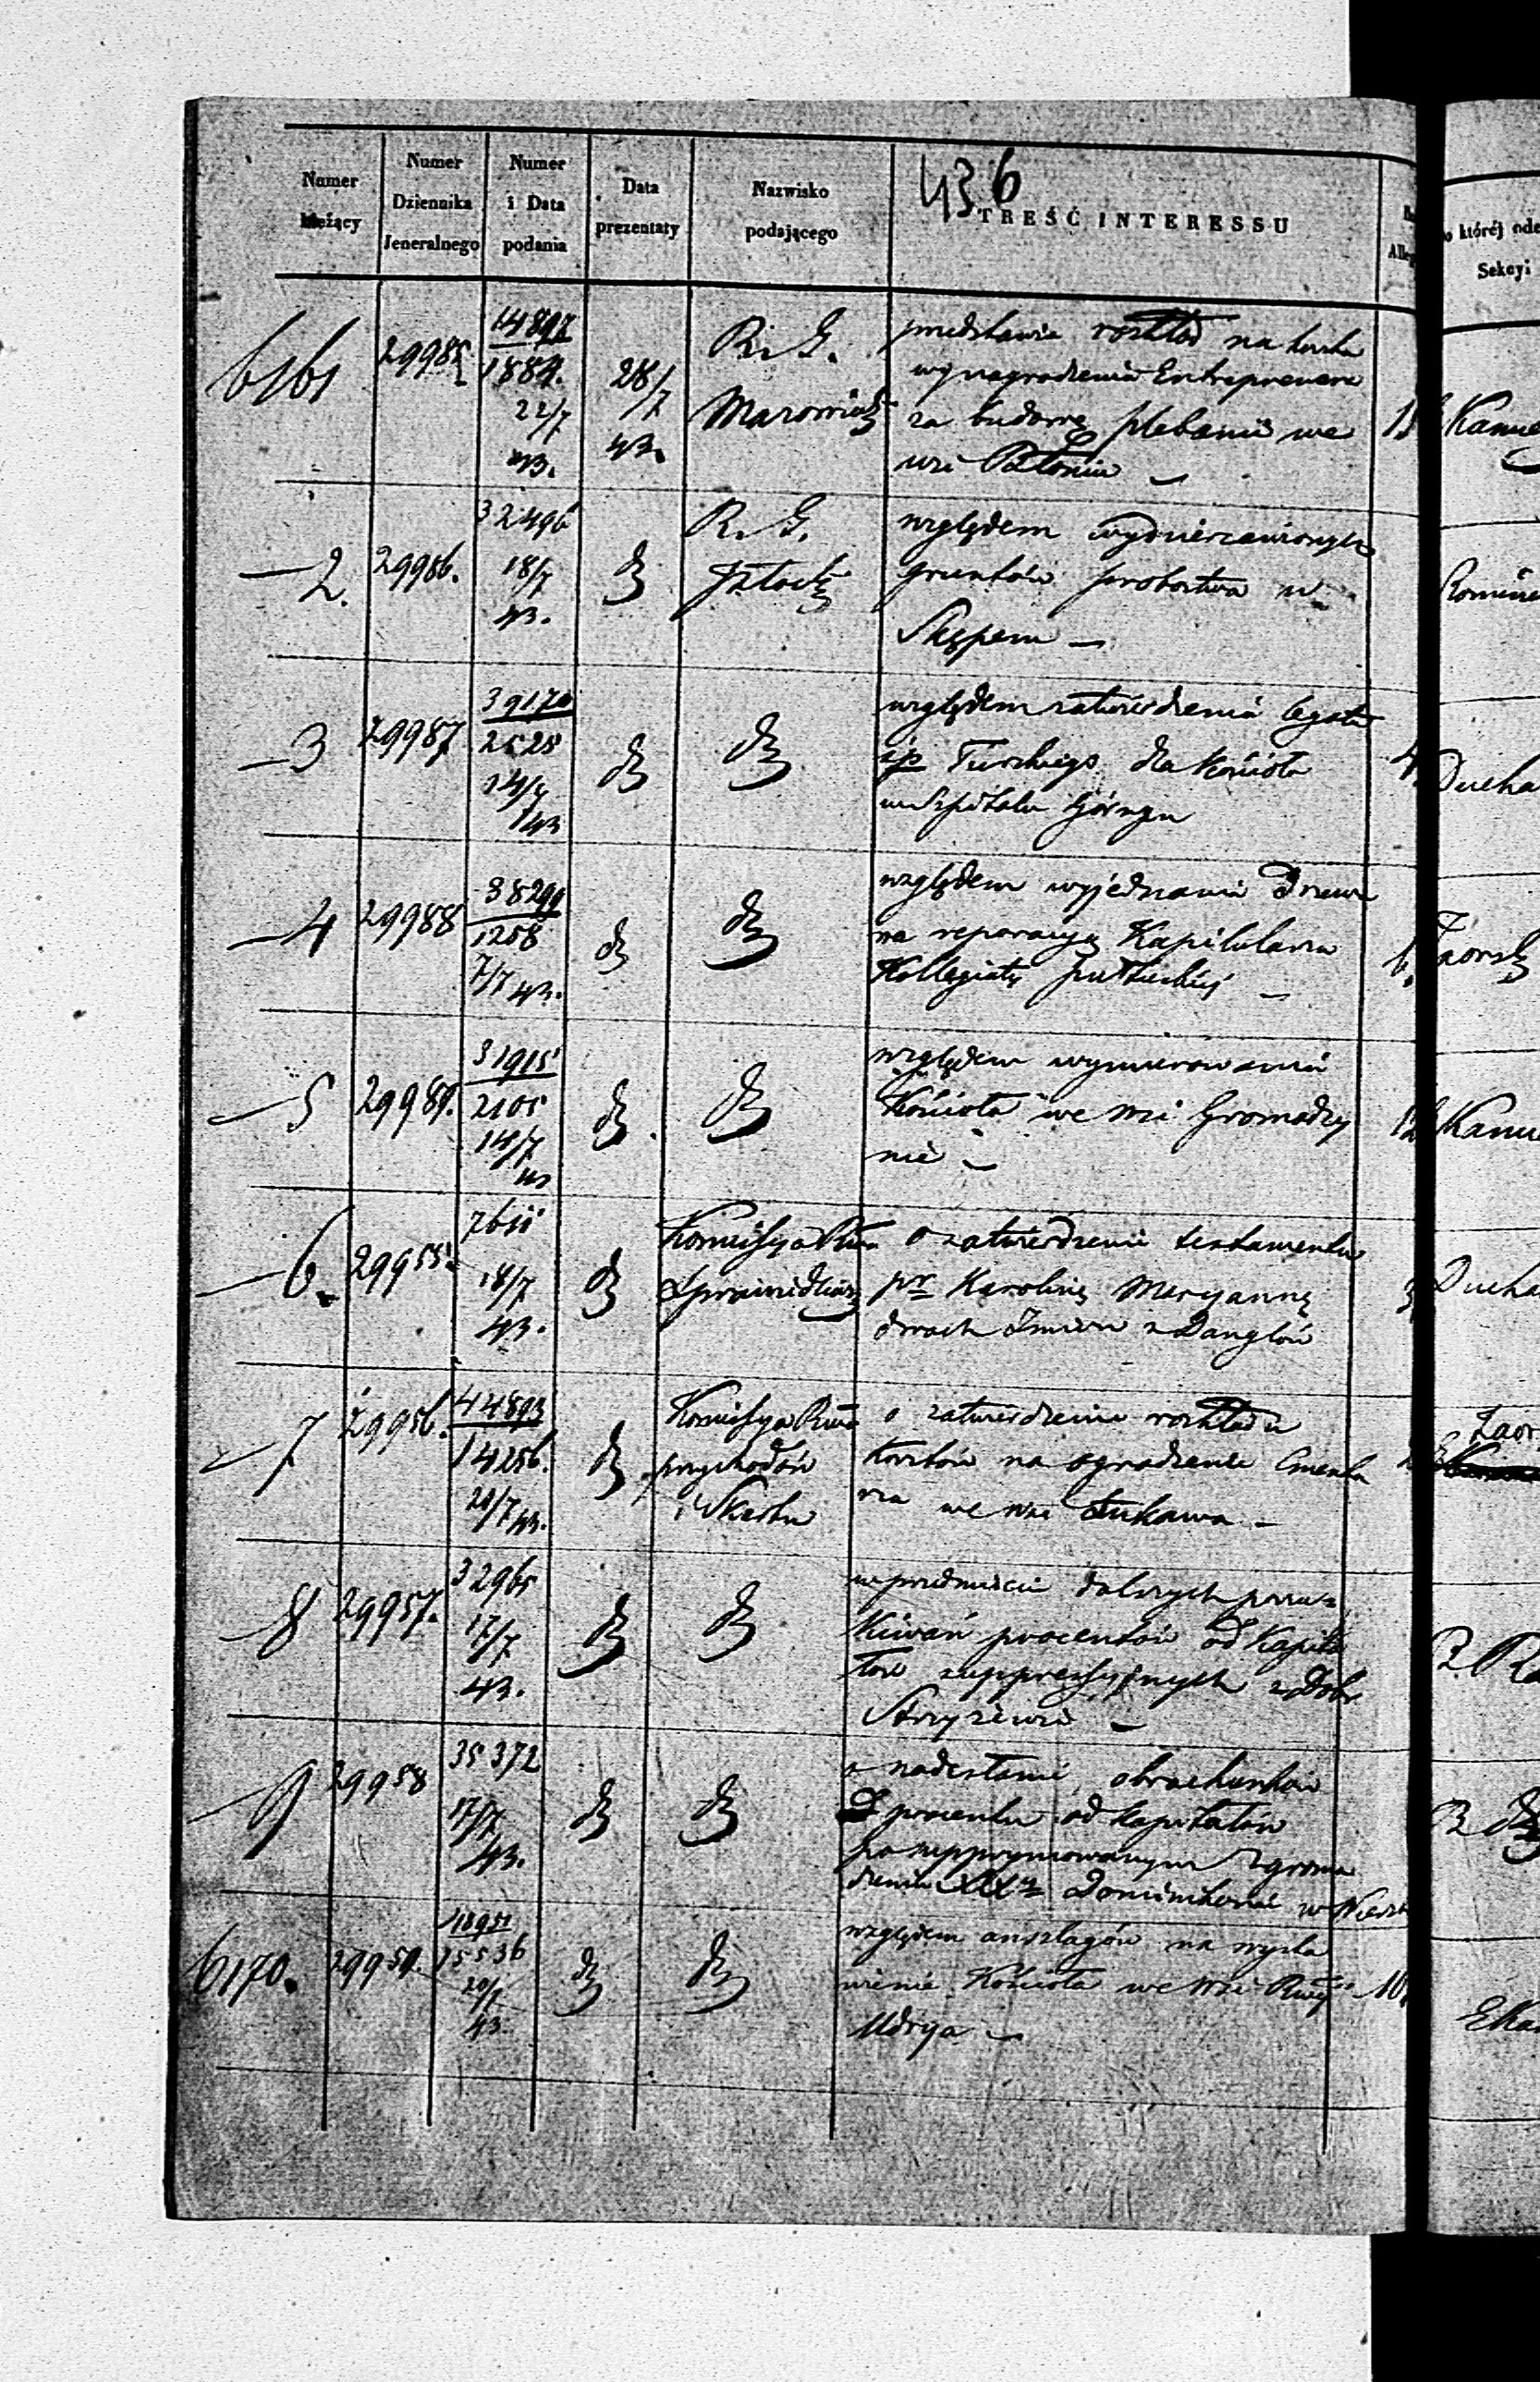 436
Numer bieżący
Numer Dziennika Jeneralnego
Numer i Data podania
Data prezentaty
Nazwisko podającego
TREŚĆ INTERESSU
o któréj ode
Sekcyi
6161
29985
14897
1884.
22/7
43.
28/7
43.
R. G.
Mazowiec
przedstawia rozkład na koszta
wynagrodzenia Entreprenera
za budowę plebanii we
wsi
—2.
29986.
32496
18/7
43.
d
R. G.
Płock
względem wydzierżawionych
gruntów probostwa w
Skępem —
—3
29987
39170
2525
14/7
43
d
d
względem zatwierdzenia legatu
śp Turskiego dla kościoła
w Szpitalu Górnym
4
Ducha
—4
29988
38299
1258
7/7 43.
d
d
względem wyjednania Drzewa
na reparacyę Kapitularza
Kollegiaty pułtuskiéj —
6.
Zaorsk
—5
29989.
31915
2105
14/7
43
d
d
względem wymurowania
Kościoła we wsi Gromadzy
nie —
12
—6.
29955.
7611
18/7
43.
d
Komissya Rzą
Sprawiedliwoś
o zatwierdzenie testamentu
pr Karolinę Maryannę
dwoch Imion z Danglów
Ducha
—7
29956.
44893
14256.
20/7 43.
d
Komissya Rzą
przychodów
i Skarbu
o zatwierdzenie rozkładu
kosztów na ogrodzenie Cmenta
rza we wsi Łukawa —
Zaor
—8
29957.
32965
17/7
43.
d
d
w przedmiocie dalszych poszu
kiwań procentów od Kapita
łów suppressyjnych z Dobr
—9
29958
35372
17/7
43.
d
d
o nadesłanie obrachunków
procentu od kapitałów
po supprymowanym Zgroma
dzeniu XX Dominikanów w
6170.
29959.
11895
15536
20/7
43
d
d
względem anszlagów na wysta
wienie Kościoła we Wsi
Udrya —
10